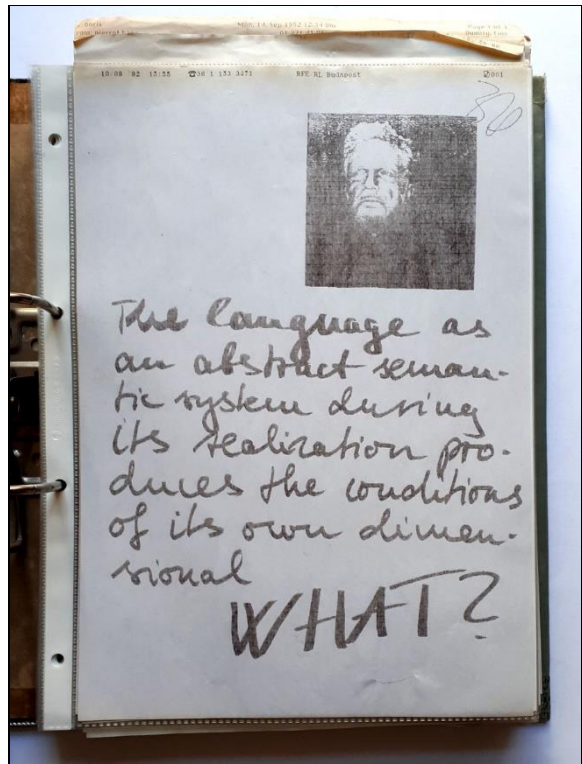 Mon, 14 Sep 1992 12:14
10/09 '92 13:35 ☎36 1 133 3471 RFE-RL Budapest 001
The language as
an abstract seman-
tic system during
its realization pro-
duces the conditions
of its own dimen-
sional
WHAT?